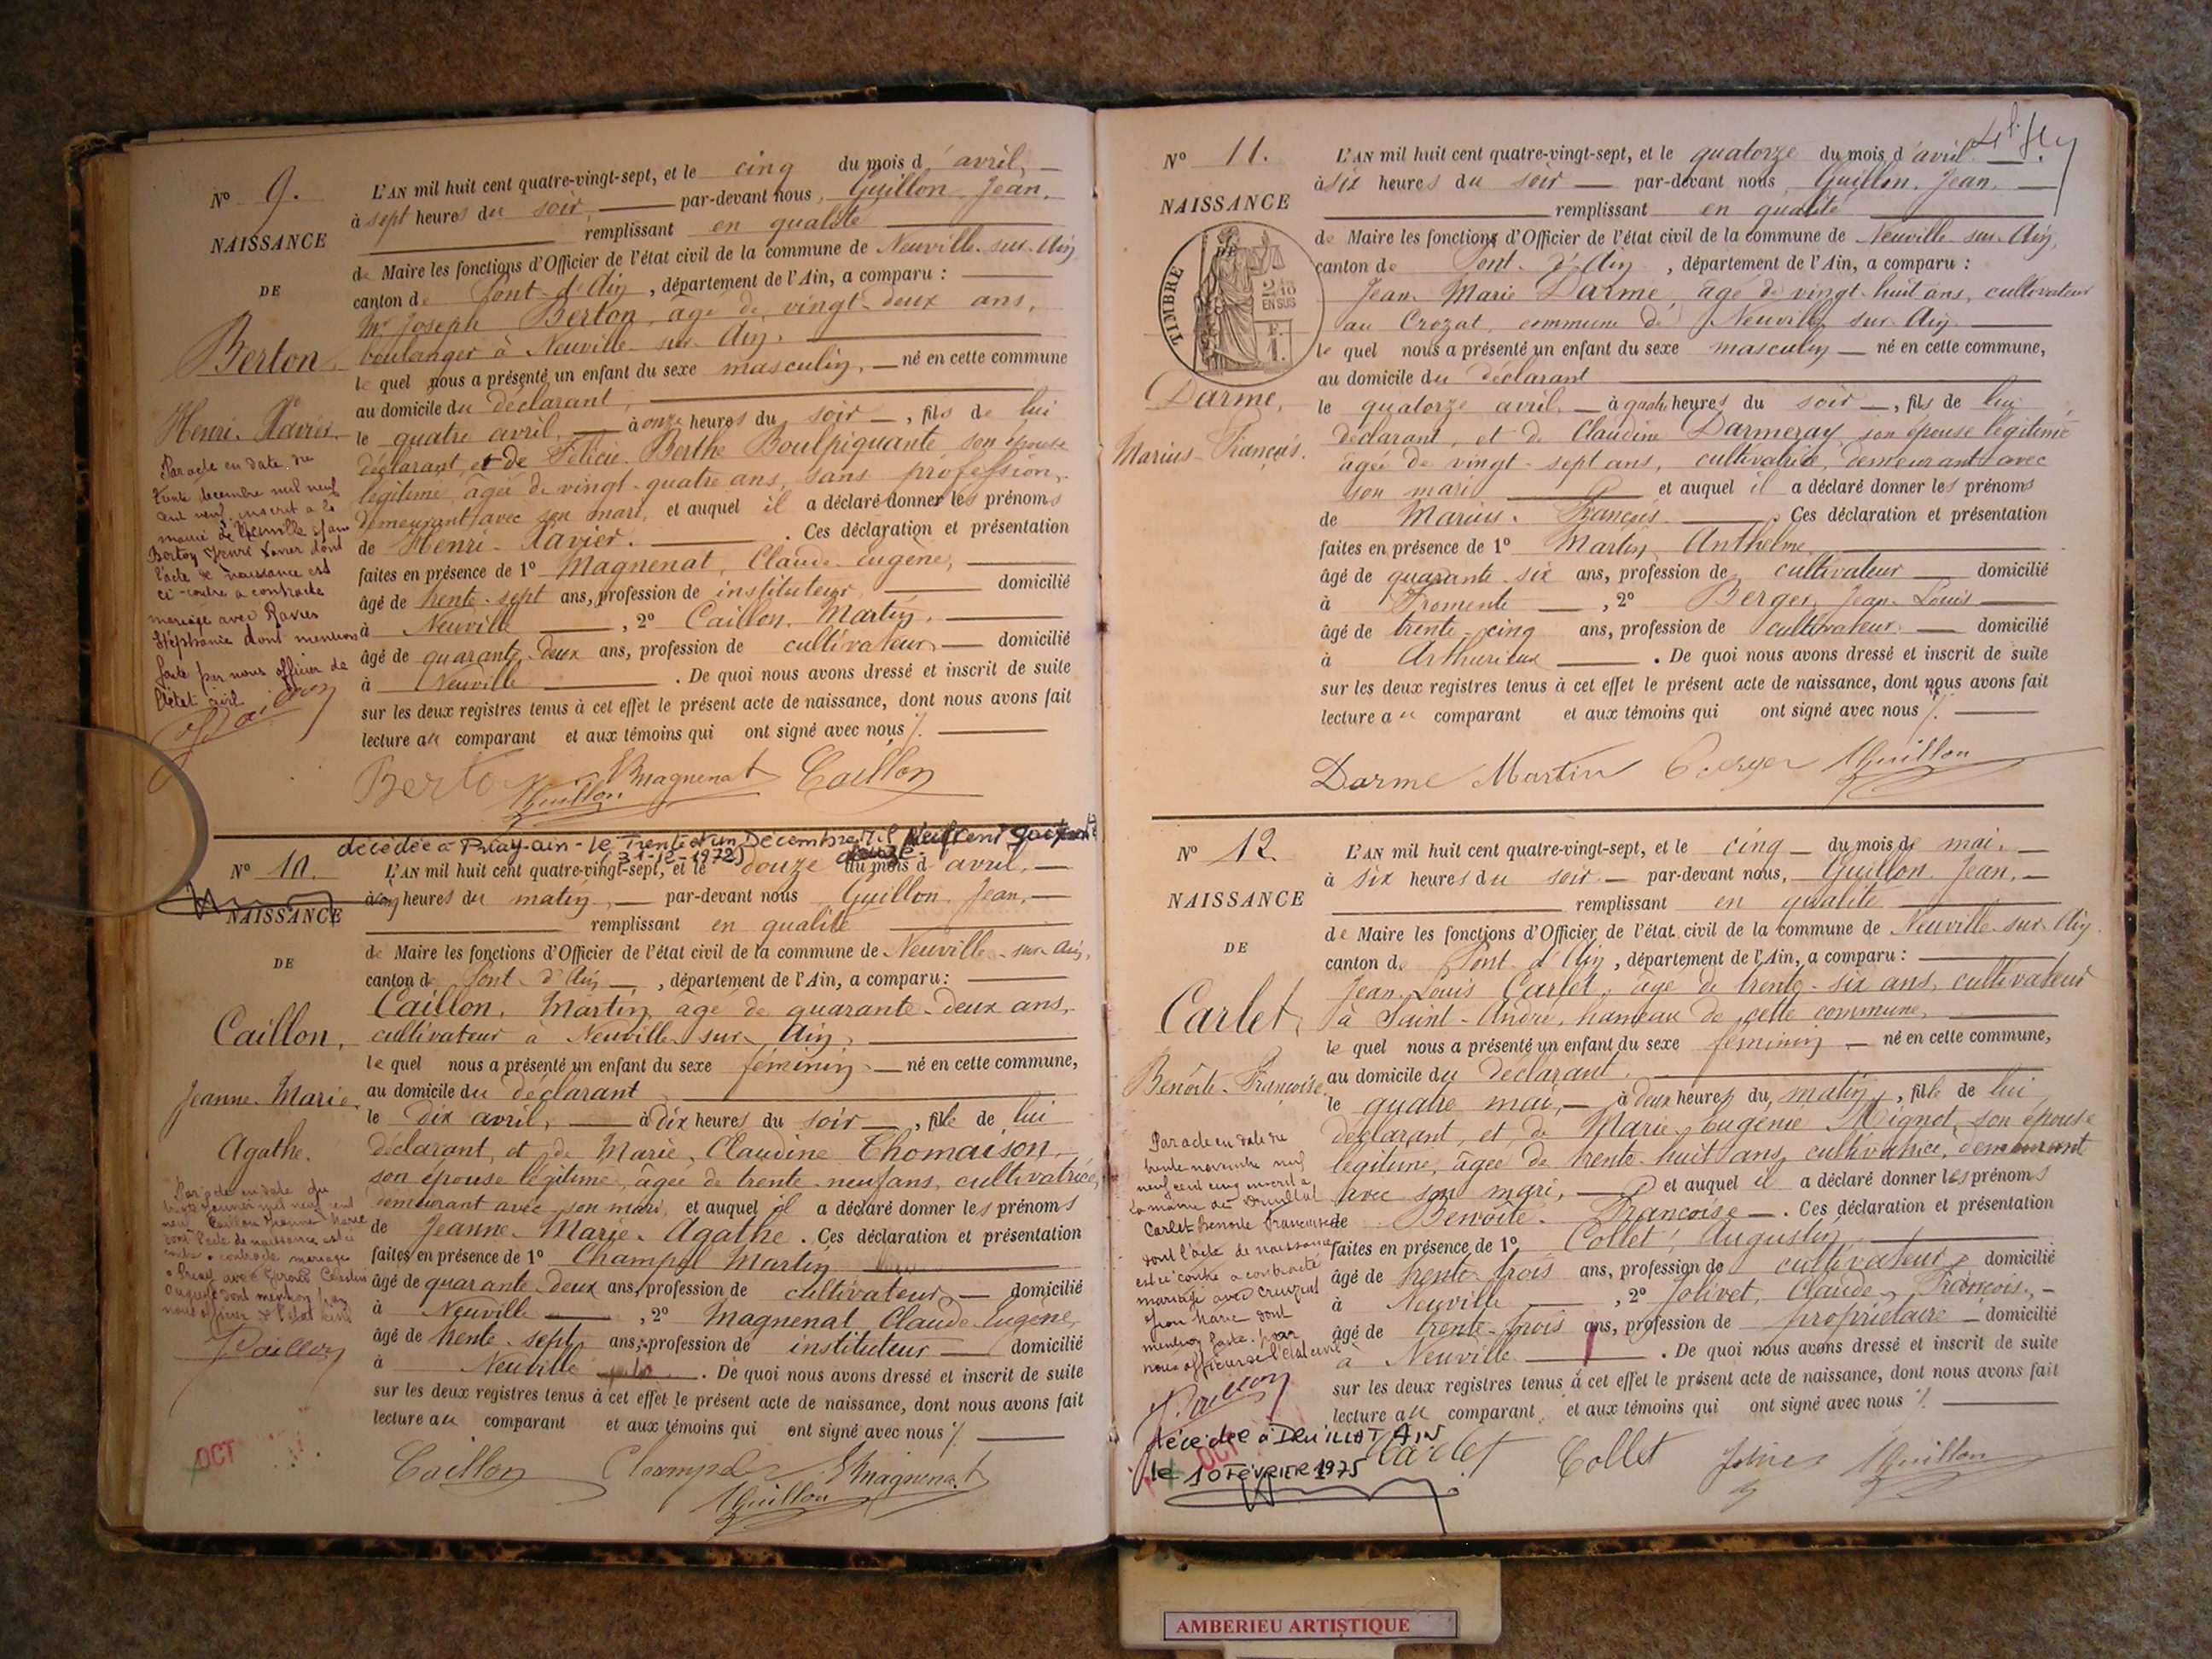 N° 9.
NAISSANCE
DE
Berton,
Henri-Xavier.
L'AN mil huit cent quatre-vingt-sept, et le cinq du mois d'avril,
à sept heures du soir, par-devant nous, Guillon Jean,
remplissant en qualité
de Maire les fonctions d'Officier de l'état civil de la commune de Neuville-sur-Ain
canton de Pont-d'Ain, département de l'Ain, a comparu :
Mr Joseph Berton, âgé de vingt-deux ans,
boulanger à Neuville-sur-Ain,
lequel nous a présenté un enfant du sexe masculin, né en cette commune
au domicile du déclarant,
le quatre avril, à onze heures du soir, fils de lui
déclarant, et de Félicie Berthe Boulpiquante son épouse
légitime, âgée de vingt-quatre ans, sans profession,
demeurant avec son mari, et auquel il a déclaré donner les prénoms
de Henri-Xavier. Ces déclaration et présentation
faites en présence de 1° Magnenat, Claude-Eugène,
âgé de trente-sept ans, profession de instituteur, domicilié
à Neuville, 2° Caillon, Martin,
âgé de quarante-deux ans, profession de cultivateur, domicilié
à Neuville. De quoi nous avons dressé et inscrit de suite
sur les deux registres tenus à cet effet le présent acte de naissance, dont nous avons fait
lecture au comparant et aux témoins qui ont signé avec nous
Par acte en date du
trente decembre mil neuf
cent neuf inscrit à la
mairie de Neuville s/ain
Berton Henri Xavier dont
l'acte de naissance est
ci-contre a contracté
mariage avec Ravier
Stéphanie dont mention
faite par nous officier de
l'état civil
Berton Magnenat Caillon
Guillon
décédée à Priay-ain - le Trente et un Décembre Mil Neuf cent soixante
douze
(31-12-1972)
N° 10.
NAISSANCE
DE
Caillon,
Jeanne-Marie
Agathe.
L'AN mil huit cent quatre-vingt-sept, et le douze du mois d'avril,
à cinq heures du matin, par-devant nous Guillon Jean,
remplissant en qualité
de Maire les fonctions d'Officier de l'état civil de la commune de Neuville-sur-Ain,
canton de Pont-d'Ain, département de l'Ain, a comparu :
Caillon, Martin, âgé de quarante-deux ans,
cultivateur à Neuville-sur-Ain,
lequel nous a présenté un enfant du sexe féminin, né en cette commune,
au domicile du déclarant
le dix avril, à dix heures du soir, fille de lui
déclarant, et de Marie, Claudine Thomaison,
son épouse légitime, âgée de trente-neuf ans, cultivatrice,
demeurant avec son mari, et auquel il a déclaré donner les prénoms
de Jeanne-Marie-Agathe. Ces déclaration et présentation
faites en présence de 1° Champel Martin
âgé de quarante-deux ans, profession de cultivateur, domicilié
à Neuville, 2° Magnenat Claude Eugène,
âgé de trente-sept ans, profession de instituteur domicilié
à Neuville. De quoi nous avons dressé et inscrit de suite
sur les deux registres tenus à cet effet le présent acte de naissance, dont nous avons fait
lecture au comparant et aux témoins qui ont signé avec nous
Par acte en date du
janvier mil neuf cent
neuf Caillon Jeanne Marie
dont l'acte de naissance est ci
contre a contracté mariage
à Priay avec
dont mention par
nous officier de l'état civil
OCT
Caillon Champel Magnenat
Guillon
N° 11.
NAISSANCE
TIMBRE
DE
2/10
EN SUS
F.
1.
Darme,
Marius-François.
L'AN mil huit cent quatre-vingt-sept, et le quatorze du mois d'avril
à six heures du soir par-devant nous, Guillon, Jean,
remplissant en qualité
de Maire les fonctions d'Officier de l'état civil de la commune de Neuville-sur-Ain,
canton de Pont-d'Ain, département de l'Ain, a comparu :
Jean Marie Darme, âgé de vingt-huit ans, cultivateur
au Crozat, commune de Neuville-sur-Ain
lequel nous a présenté un enfant du sexe masculin né en cette commune,
au domicile du déclarant
le quatorze avril, à quatre heures du soir, fils de lui
déclarant, et de Claudine Darmeray, son épouse légitime
âgée de vingt-sept ans, cultivatrice, demeurant avec
son mari et auquel il a déclaré donner les prénoms
de Marius-François. Ces déclaration et présentation
faites en présence de 1° Martin Anthelme,
âgé de quarante-six ans, profession de cultivateur domicilié
à Fromente, 2° Berger, Jean-Louis
âgé de trente-cinq ans, profession de cultivateur domicilié
à Arthurieux. De quoi nous avons dressé et inscrit de suite
sur les deux registres tenus à cet effet le présent acte de naissance, dont nous avons fait
lecture au comparant et aux témoins qui ont signé avec nous
Darme Martin Berger Guillon
N° 12.
NAISSANCE
DE
Carlet,
Benoîte-Françoise
L'AN mil huit cent quatre-vingt-sept, et le cinq du mois de mai,
à six heures du soir par-devant nous, Guillon, Jean,
remplissant en qualité
de Maire les fonctions d'Officier de l'état civil de la commune de Neuville-sur-Ain,
canton de Pont-d'Ain, département de l'Ain, a comparu :
Jean-Louis Carlet, âgé de trente-six ans, cultivateur
à Saint-André, hameau de cette commune,
lequel nous a présenté un enfant du sexe féminin né en cette commune,
au domicile du déclarant
le quatre mai, à deux heures du matin, fille de lui
déclarant, et de Marie-Eugénie Mignot, son épouse
légitime, âgée de trente-huit ans, cultivatrice, demeurant
avec son mari, et auquel il a déclaré donner les prénoms
de Benoîte-Françoise. Ces déclaration et présentation
faites en présence de 1° Collet, Augustin,
âgé de trente-trois ans, profession de cultivateur, domicilié
à Neuville, 2° Jolivet, Claude-François,
âgé de trente-trois ans, profession de propriétaire domicilié
à Neuville. De quoi nous avons dressé et inscrit de suite
sur les deux registres tenus à cet effet le présent acte de naissance, dont nous avons fait
lecture au comparant et aux témoins qui ont signé avec nous
Par acte en date du
trente novembre mil
neuf cent cinq inscrit à
la mairie de Druillat
Carlet Benoite Françoise
dont l'acte de naissance
est ci contre a contracté
mariage avec
Marie dont
mention faite par
nous officier de l'état civil
décédée à DRUILLAT AIN
le 10 FÉVRIER 1975
OCT
Carlet Collet Jolivet Guillon
AMBERIEU ARTISTIQUE